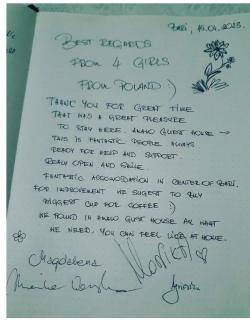 Bari, 14.04.2023.
BEST REGARDS
FROM 4 GIRLS
FROM POLAND :)
THANK YOU FOR GREAT TIME
THAT WAS A GREAT PLEASURE
TO STAY HERE. GUEST HOUSE →
THIS IS FANTASTIC PEOPLE ALWAYS
READY FOR HELP AND SUPPORT
REALY OPEN AND SMILE.
FANTASTIC ACCOMODATION IN CENTER OF BARI.
FOR IMPROVEMENT WE SUGEST TO BUY
BIGGEST CUP FOR COFFEE :)
WE FOUND IN GUEST HOUSE ALL WHAT
WE NEED. YOU CAN FEEL LIKE AT HOME.
Magdalena